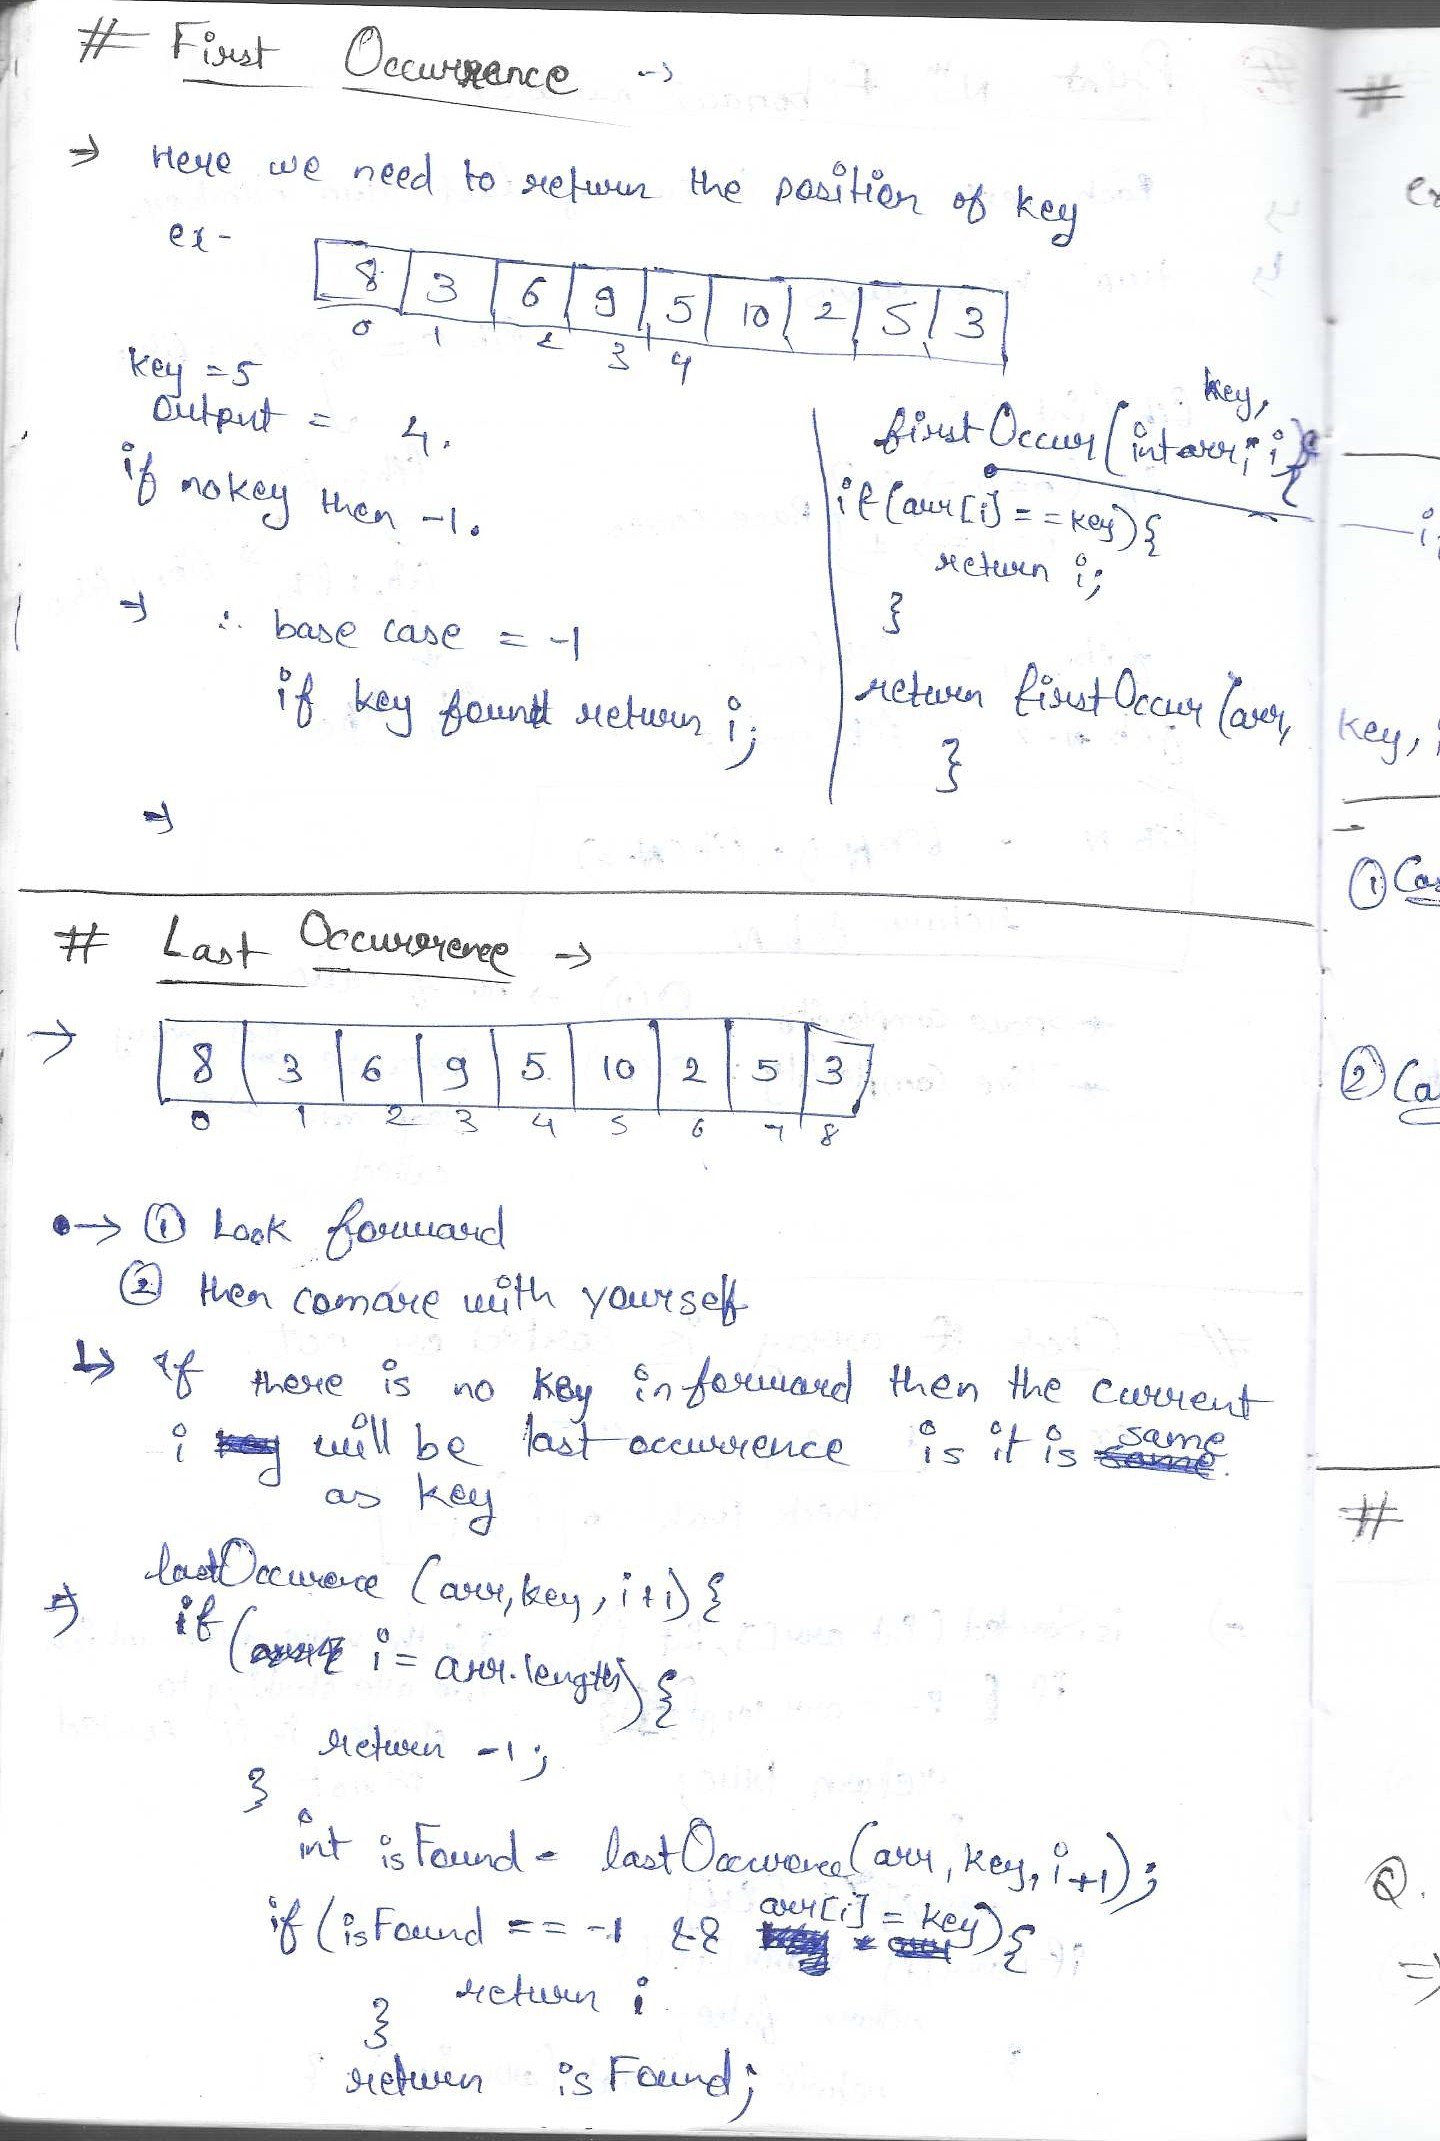 # First Occurrence →
⇒ Here we need to return the position of key
ex-
8 3 6 9 5 10 2 5 3
0 1 2 3 4
key = 5
Output = 4.
if no key then -1.
⇒ ∴ base case = -1
if key found return i;
⇒
key,
firstOccur(int arr, i){
if(arr[i]==key){
return i;
}
return firstOccur(arr, key,
}
# Last Occurrence →
→ 8 3 6 9 5 10 2 5 3
0 1 2 3 4 5 6 7 8
•→ ① Look forward
② then comare with yourself
↳ If there is no key in forward then the current
i will be last occurrence is it is same
as key
⇒ lastOccurence (arr, key, i+1) {
if ( i = arr.length) {
return -1;
}
int isFound = lastOccurence(arr, key, i+1);
if (isFound == -1 && arr[i] = key) {
return i
}
return isFound;
#
① 
② 
#
Q.
⇒